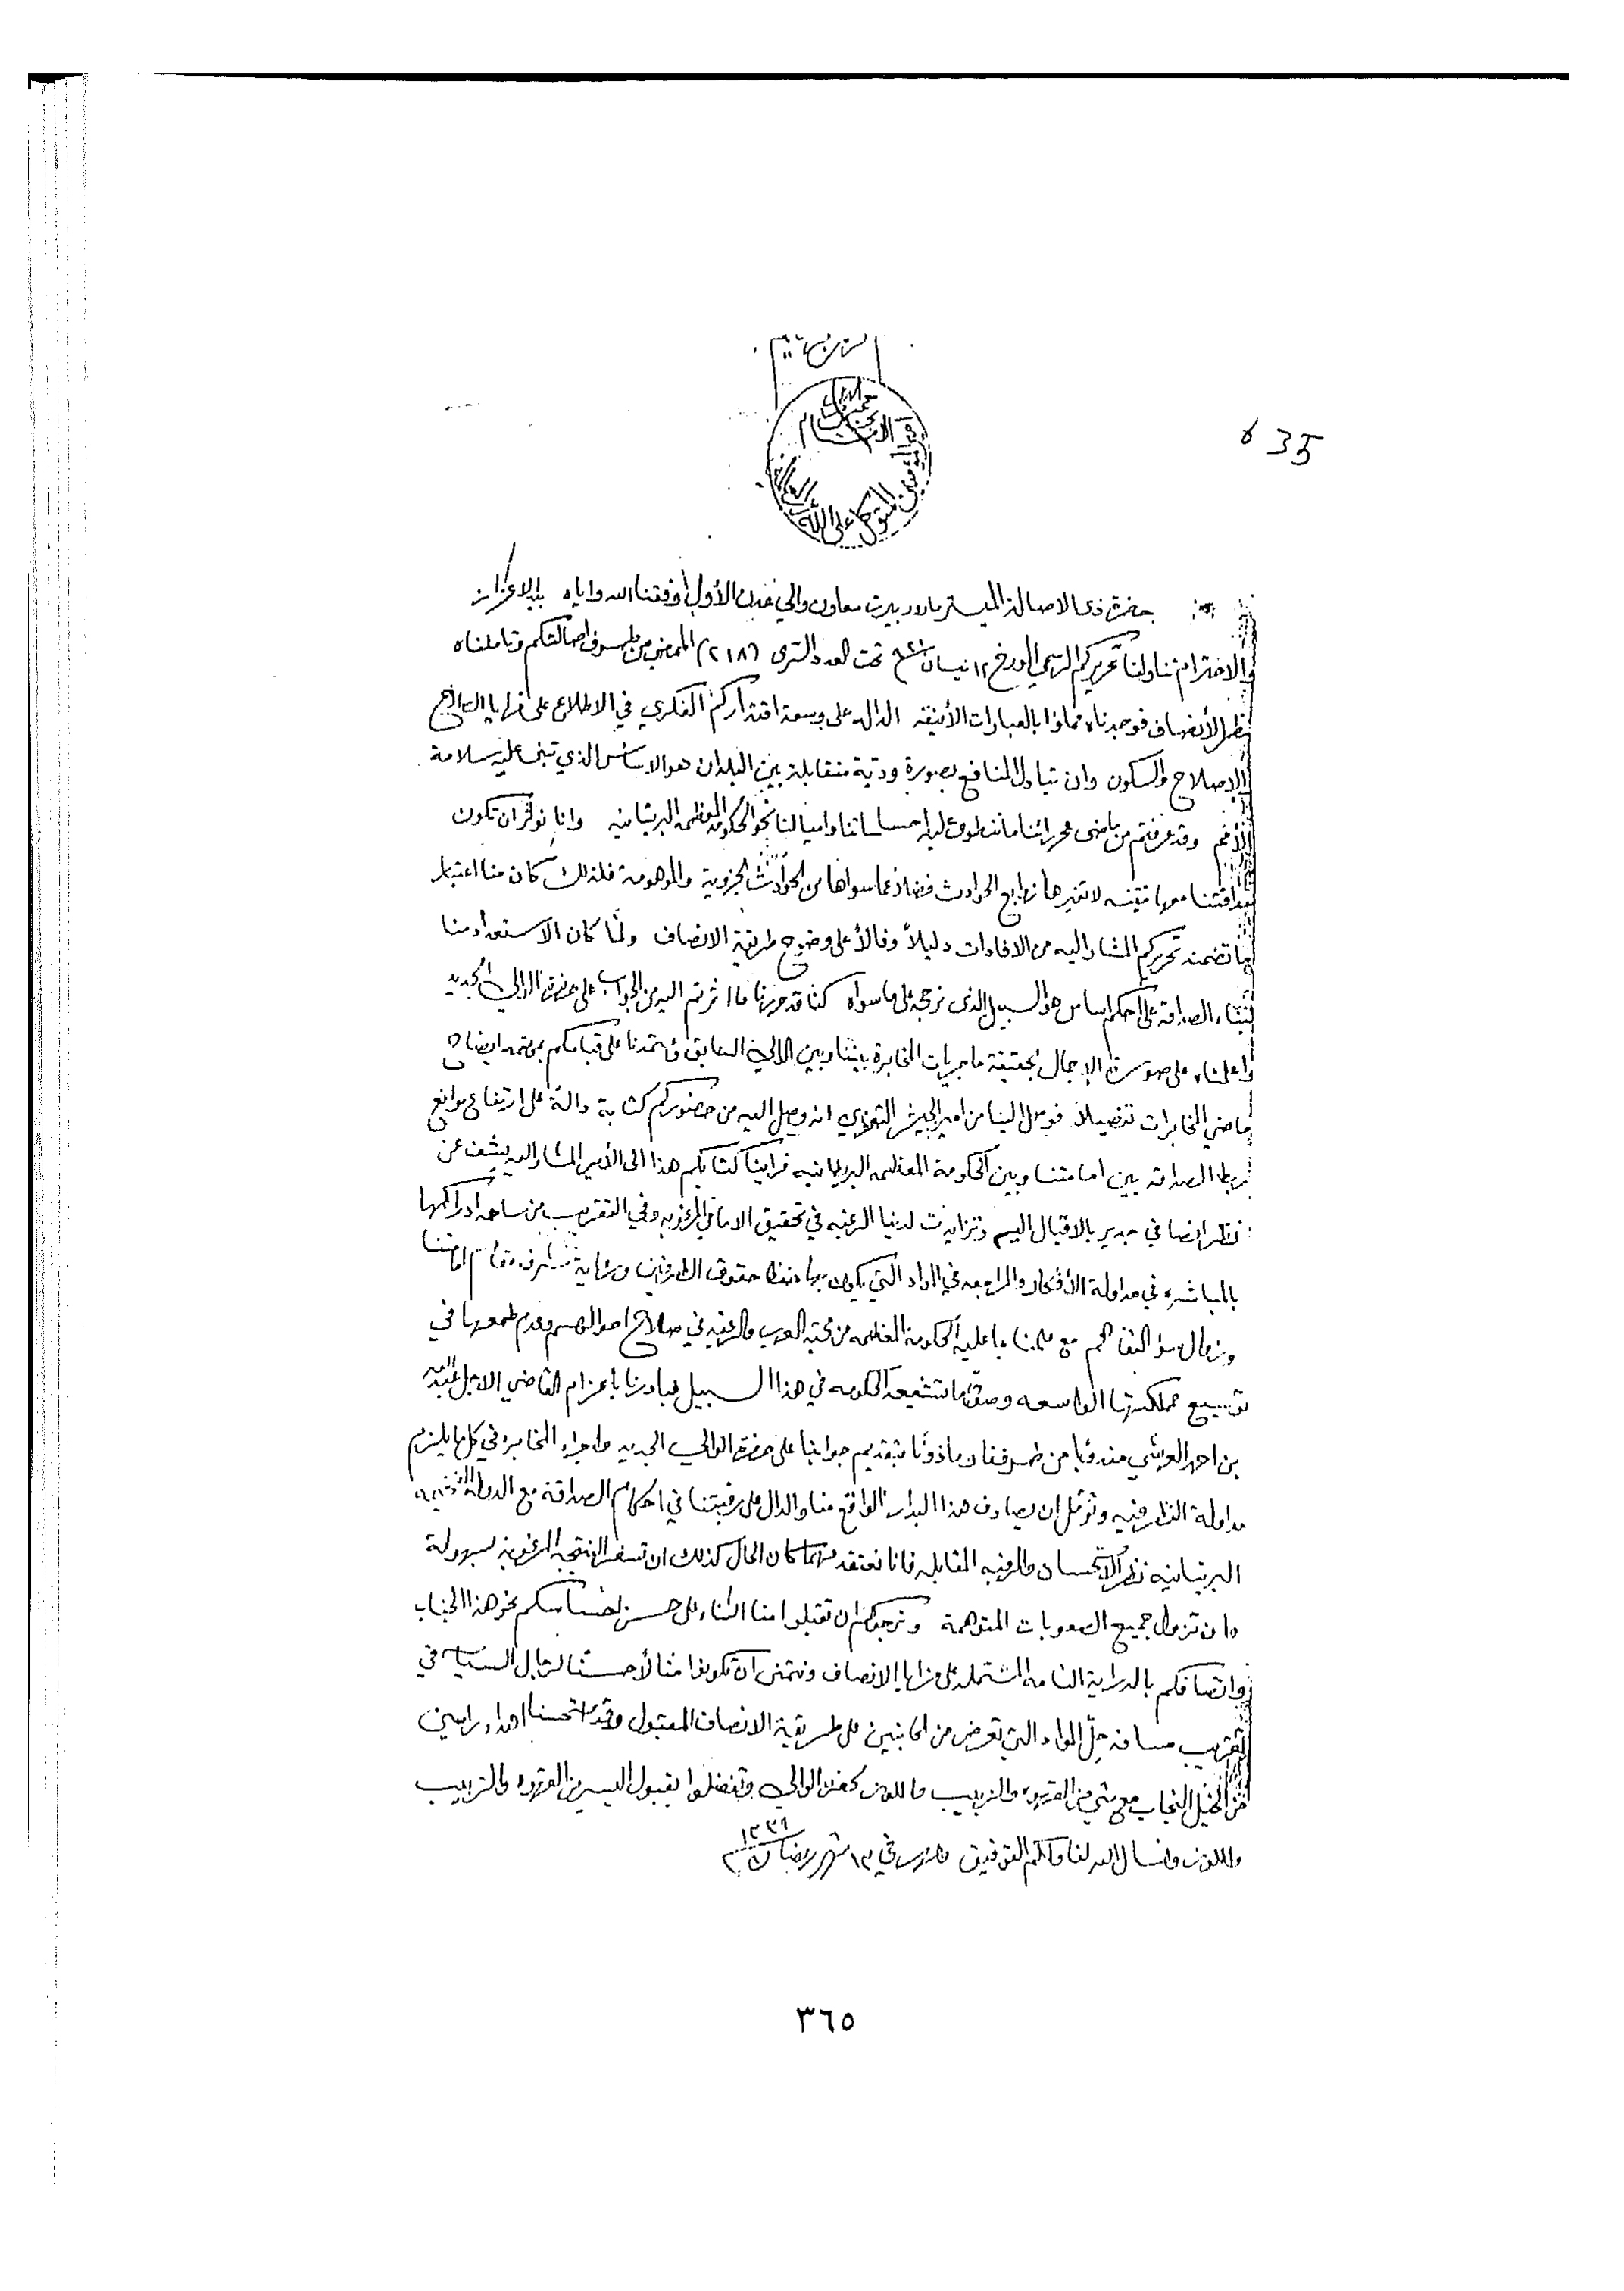 635
حضرة ذي الاصالة المستر بارد بيرت معاون والي عدن الأول وفقنا الله واياه بيد الاعزاز
والاحترام تناولنا تحريركم الرسمي المورخ ١٢ نيسان تحت العدد السرى (٢١٨) الممضي من طرف اصالتكم وتاملناه
بنظر الأنصاف فوجدناه مملوا بالعبارات الأنيقه الداله على وسعة اقتداركم الفكري في الاطلاع على مزايا
الاصلاح والسكون وان تبادل المنافع بصورة ودية متقابلة بين البلدان هو الاساس الذي تبنى عليه سلامة
الأمم وقد عرفتم من ماضى محرراتنا ما تنطوي عليه احساساتنا واميالنا نحو الحكومه المعظمه البريتانيه وانا نؤثر ان تكون
صداقتنا معها متينه لا تغيرها زوابع الحوادث فضلا عما سواها من الحوادث الجزوية والموهومة فلذلك كان منا اعتبار
ما تضمنه تحريركم المشار اليه من الافادات دليلاً وفالاً على وضوح طريقة الانصاف ولما كان الاستعداد منا
لبناء الصداقه على احكم اساس هو السبيل الذى نرجحه على ما سواه كنا قد حررنا ما اشرتم اليه من الجواب على حضرة الوالي الجديد
واعلمناه على صورة الاجمال بحقيقة ماجريات المخابرة بيننا وبين الوالي السابق واعتمدنا على قيامكم بمهمة ايضاح
ماضي المخابرات تفصيلا فوصل الينا من امير الجيش التعزي انه وصل اليه من حضوركم كتابة دالة على ارتفاع موانع
ربط الصداقه بين امامتنا وبين الحكومة المعظمه البريطانيه فراينا كتابكم هذا الى الأمير المشار اليه يشف عن
نظر انصافي جدير بالاقبال اليه وتزايدت لدينا الرغبه في تحقيق الاماني المرغوبه وفي التقريب من ساحه ادراكها
بالمباشره في مداولة الأفكار والمراجعه في المواد التي يكون بها حفظ حقوق الطرفين ورعاية شرف مقام امامتنا
وزوال سوء التفاهم مع علمنا بما عليه الحكومة المعظمه من محبة العرب والرغبه في صلاح احوالهم وعدم طمعها في
توسيع مملكتها الواسعه وصدق ما تنتهجه الحكومه في هذا السبيل فبادرنا باعزام القاضي الاجل عبدالله
بن احمد العرشي مندوبا من طرفنا وماذونًا بتقديم جوابنا على حضرة الوالي الجديد واجراء المخابره في كل ما يلزم
مداولة النظر فيه ونؤمل ان يصادف هذا البدار الواقع منا والدال على رغبتنا في احكام الصداقة مع الدولة الفخيمه
البريتانيه نظر الاستحسان والرغبه المقابله فانا نعتقد مهما كان الحال كذلك ان تسفر النتيجه المرغوبه بسهولة
وان تزول جميع الصعوبات المتوهمة ونرجوكم ان تقبلوا منا الثناء على حسن احساسكم نحو هذا الجناب
واتصافكم بالدراية التامه المشتمله على مزايا الانصاف ونتمنى ان تكونوا مثالاً حسنًا لرجال السياسه في
تقريب مسافه حل المواد التي تعرض من الجانبين على طريقة الانصاف المقبول وقد استحسنا اهداء راسين
من الخيل النجاب مع شيء من القهوه والزبيب واللوز لحضرة الوالي وتفضلوا بقبول اليسير من القهوه والزبيب
واللوز ونسال الله لنا ولكم التوفيق وحرر في ١٣ شهر رمضان ١٣٣٩
٣٦٥